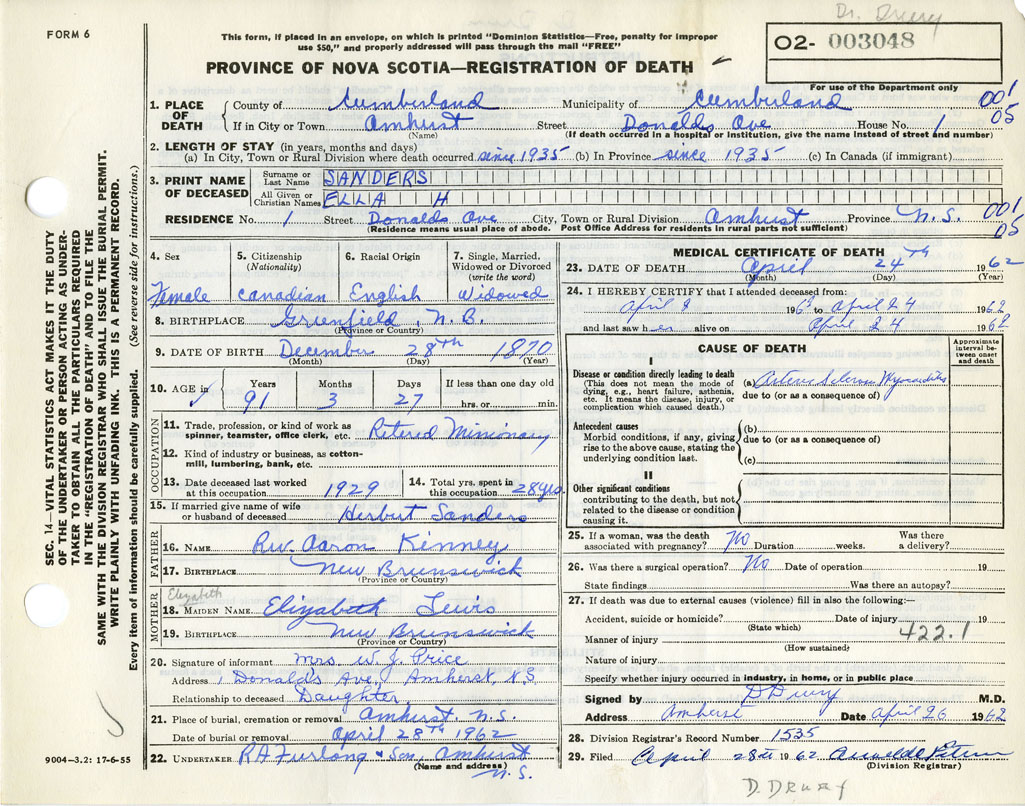 Dr. Drury
FORM 6
This form, if placed in an envelope, on which is printed "Dominion Statistics—Free, penalty for improper
use $50," and properly addressed will pass through the mail "FREE"
O2- 003048
PROVINCE OF NOVA SCOTIA—REGISTRATION OF DEATH
For use of the Department only
1. PLACE OF DEATH
County of Cumberland Municipality of Cumberland 001
If in City or Town Amhurst Street Donalds Ave House No. 1 05
(Name) (If death occurred in a hospital or institution, give the name instead of street and number)
2. LENGTH OF STAY (in years, months and days)
(a) In City, Town or Rural Division where death occurred since 1935 (b) In Province since 1935 (c) In Canada (if immigrant)
3. PRINT NAME OF DECEASED
Surname or Last Name SANDERS
All Given or Christian Names ELLA H
RESIDENCE No. 1 Street Donalds Ave City, Town or Rural Division Amhurst Province N.S. 001
(Residence means usual place of abode. Post Office Address for residents in rural parts not sufficient) 05
4. Sex
Female
5. Citizenship
(Nationality)
Canadian
6. Racial Origin
English
7. Single, Married,
Widowed or Divorced
(write the word)
Widowed
8. BIRTHPLACE Greenfield, N.B.
(Province or Country)
9. DATE OF BIRTH December 28th 1870
(Month) (Day) (Year)
10. AGE
Years Months Days If less than one day old
91 3 27 hrs. or min.
OCCUPATION
11. Trade, profession, or kind of work as
spinner, teamster, office clerk, etc. Retired Missionary
12. Kind of industry or business, as cotton-
mill, lumbering, bank, etc.
13. Date deceased last worked
at this occupation 1929
14. Total yrs. spent in
this occupation 28 yrs.
15. If married give name of wife
or husband of deceased Herbert Sanders
FATHER
16. NAME Rev. Aaron Kinney
17. BIRTHPLACE New Brunswick
(Province or Country)
MOTHER
Elizabeth
18. MAIDEN NAME Elizabeth Lewis
19. BIRTHPLACE New Brunswick
(Province or Country)
20. Signature of informant Mrs. W. J. Price
Address 1 Donald's Ave, Amherst, N.S.
Relationship to deceased Daughter
21. Place of burial, cremation or removal Amhurst. N.S.
Date of burial or removal April 28th 1962
22. UNDERTAKER R A Furlong & Son, Amhurst
(Name and address) N.S.
MEDICAL CERTIFICATE OF DEATH
23. DATE OF DEATH April 24th 1962
(Month) (Day) (Year)
24. I HEREBY CERTIFY that I attended deceased from:
April 9 196 to April 24 1962
and last saw her alive on April 24 1962
CAUSE OF DEATH
Approximate
interval be-
tween onset
and death
I
Disease or condition directly leading to death
(This does not mean the mode of
dying, e.g., heart failure, asthenia,
etc. It means the disease, injury, or
complication which caused death.)
(a)
due to (or as a consequence of)
Antecedent causes
Morbid conditions, if any, giving
rise to the above cause, stating the
underlying condition last.
(b)
due to (or as a consequence of)
(c)
II
Other significant conditions
contributing to the death, but not
related to the disease or condition
causing it.
25. If a woman, was the death
associated with pregnancy? No Duration weeks. Was there
a delivery?
26. Was there a surgical operation? No Date of operation 19
State findings Was there an autopsy?
27. If death was due to external causes (violence) fill in also the following:—
Accident, suicide or homicide? Date of injury 19
(State which) 422.1
Manner of injury
(How sustained)
Nature of injury
Specify whether injury occurred in industry, in home, or in public place
Signed by D Drury M.D.
Address Amherst Date April 26 1962
28. Division Registrar's Record Number 1535
29. Filed April 28th 1962
(Division Registrar)
D. Drury
SEC. 14—VITAL STATISTICS ACT MAKES IT THE DUTY
OF THE UNDERTAKER OR PERSON ACTING AS UNDER-
TAKER TO OBTAIN ALL THE PARTICULARS REQUIRED
IN THE "REGISTRATION OF DEATH" AND TO FILE THE
SAME WITH THE DIVISION REGISTRAR WHO SHALL ISSUE THE BURIAL PERMIT.
WRITE PLAINLY WITH UNFADING INK. THIS IS A PERMANENT RECORD.
Every item of information should be carefully supplied. (See reverse side for instructions.)
9004—3.2: 17-6-55